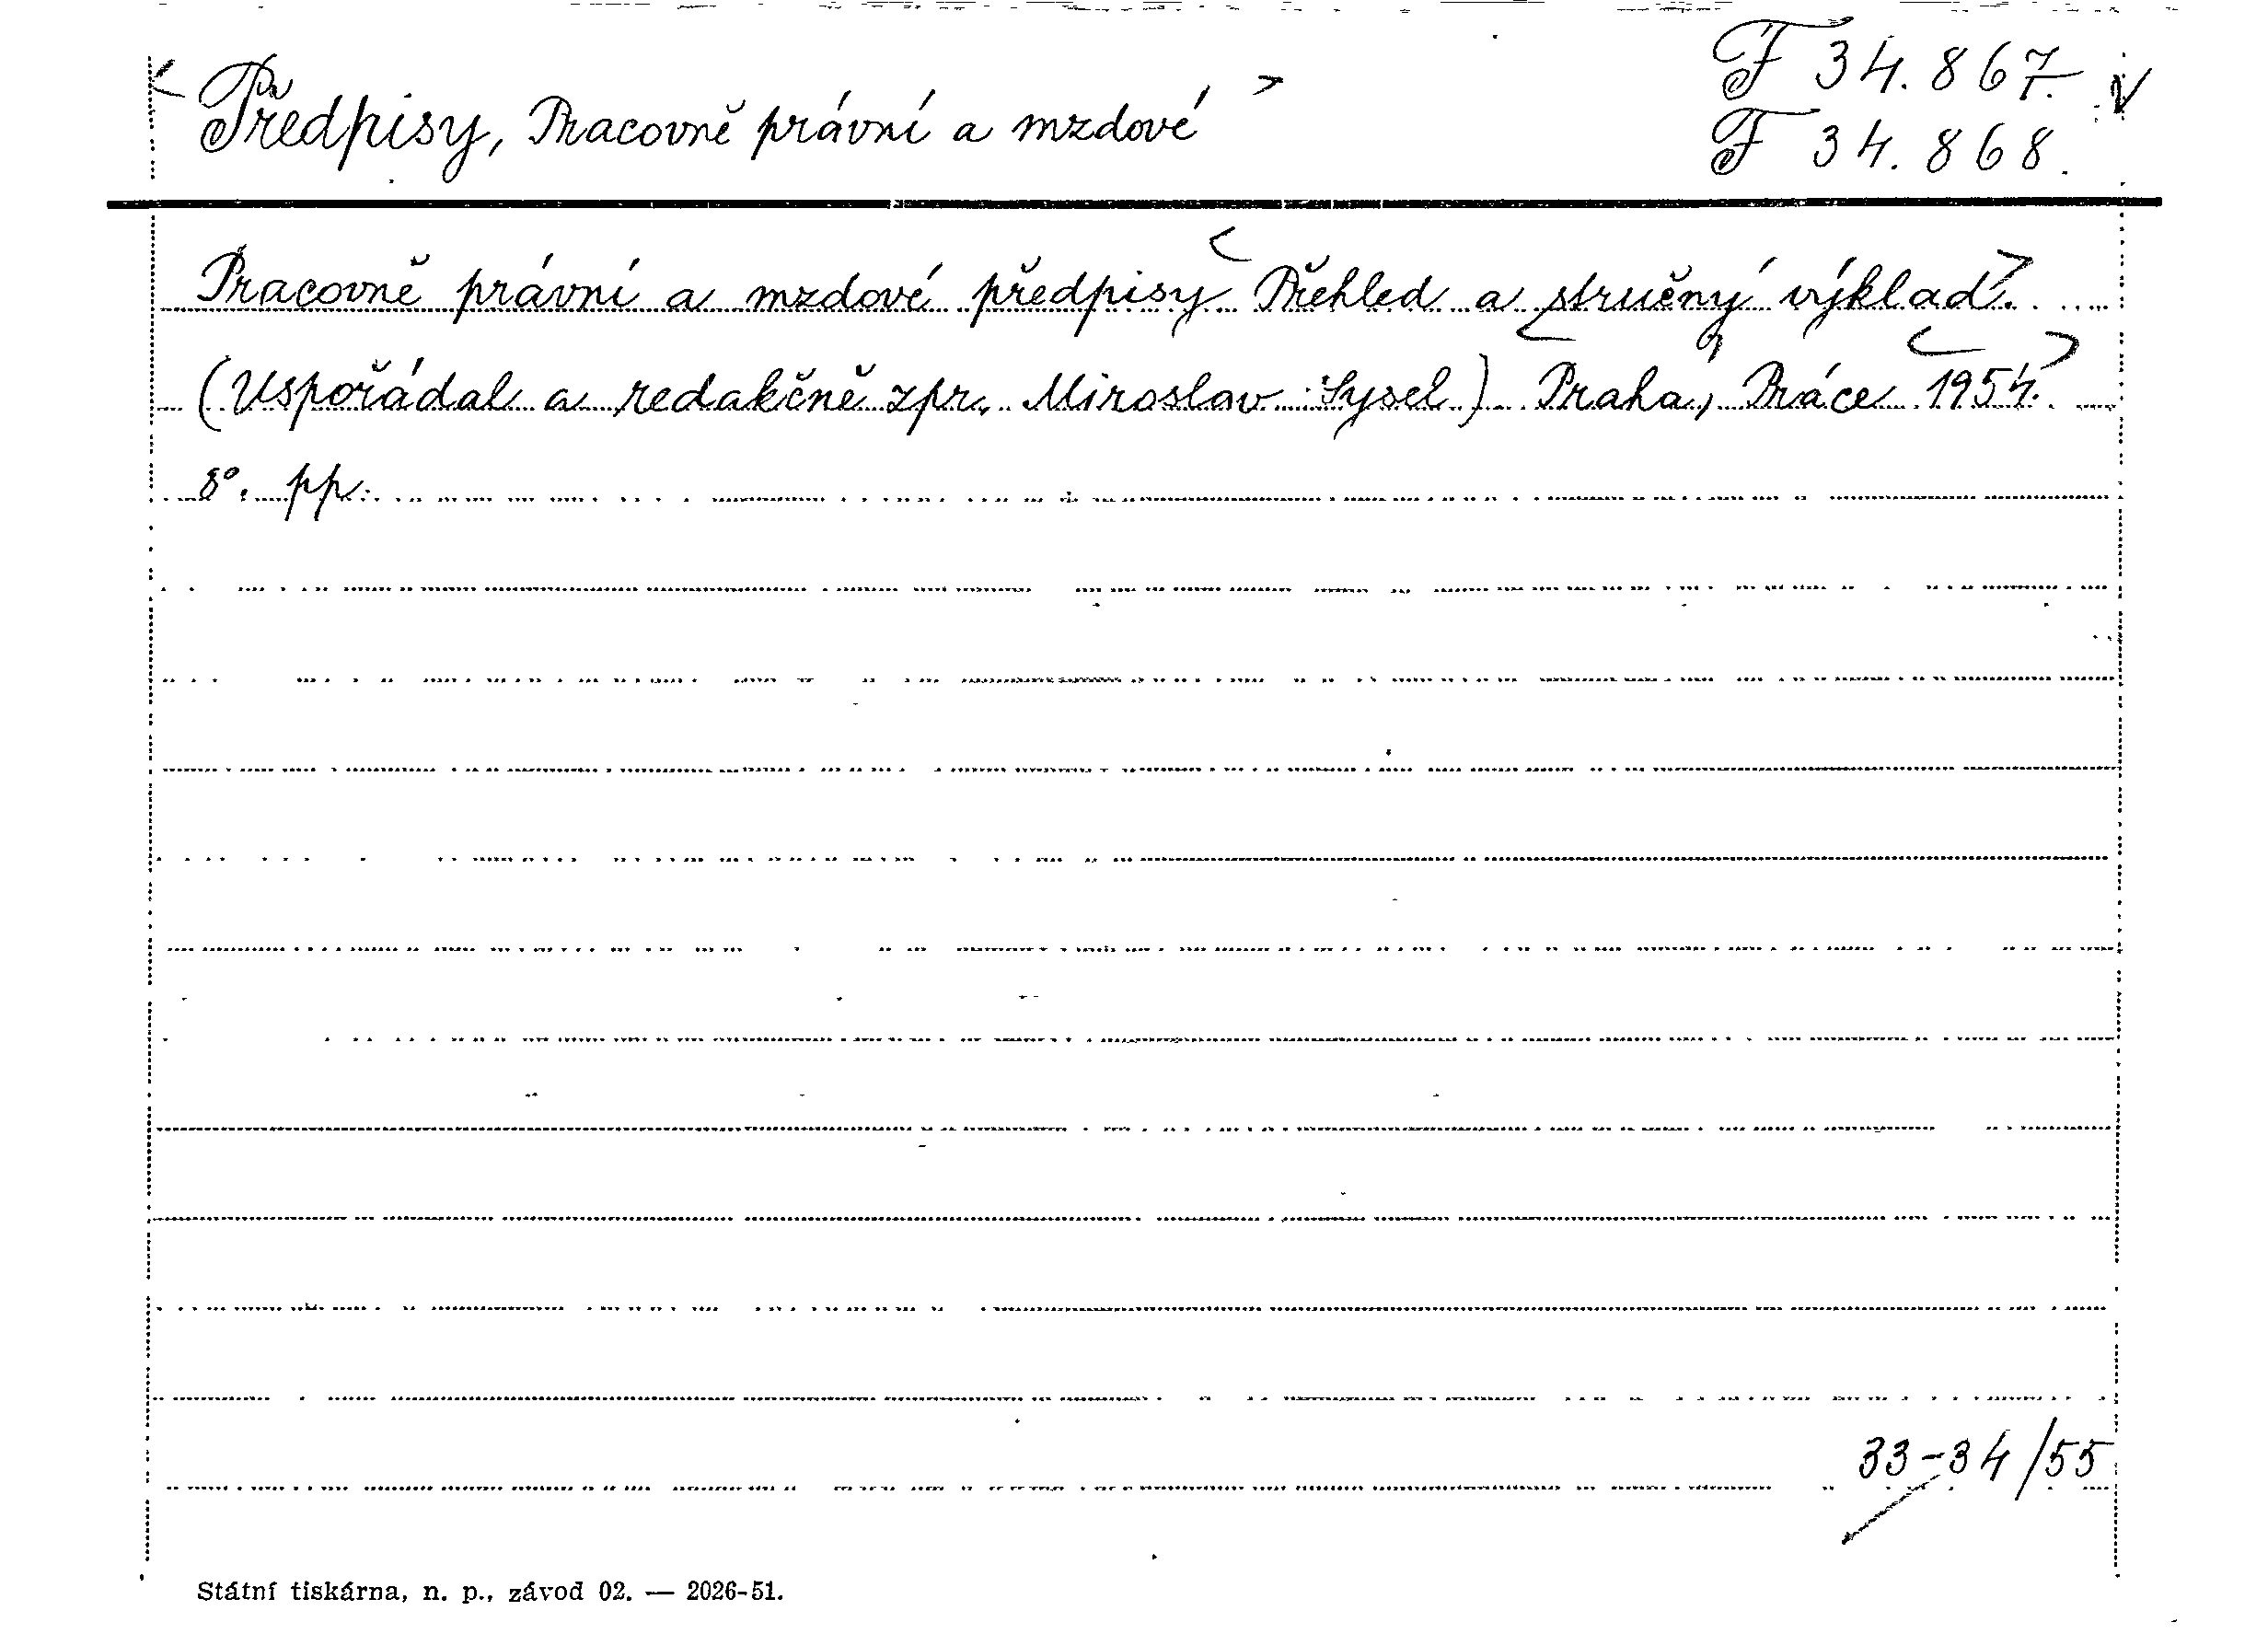 Předpisy, Pracovně právní a mzdové
F 34.867.
F 34.868.
Pracovně právní a mzdové předpisy Přehled a stručný výklad.
(Uspořádal a redakčně zpr. Miroslav Sysel) Praha, Práce 1954.
8°. pp.
33-34/55
Státní tiskárna, n. p., závod 02. — 2026-51.